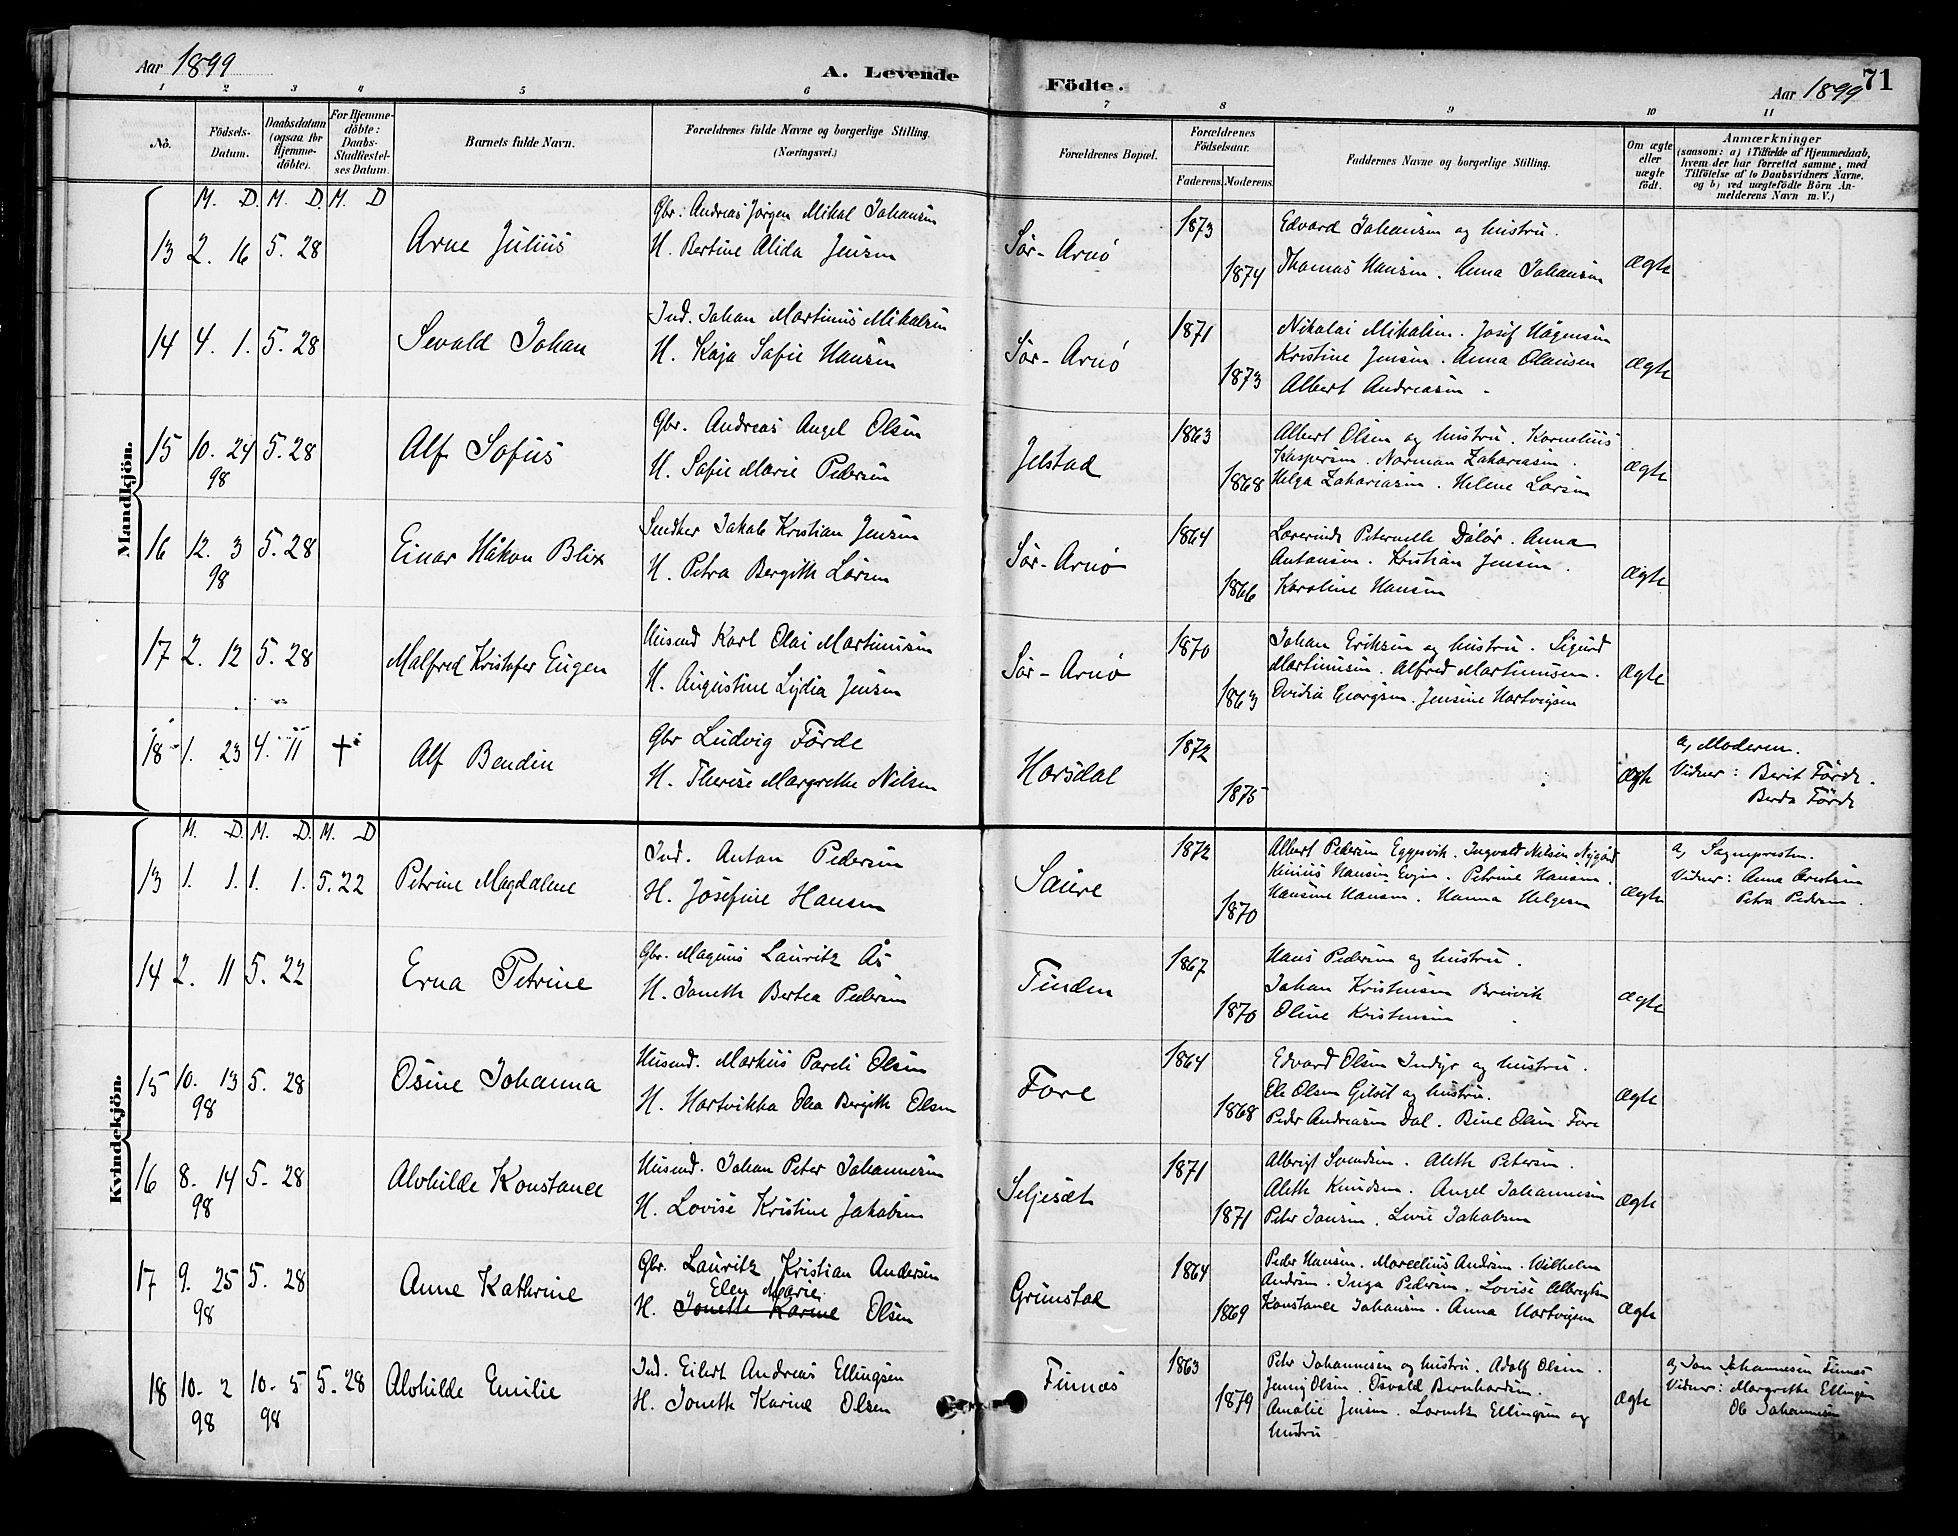 Aar 1899
A. Levende
Födte.
Aar 1899
71
1 2 3 4 5 6 7 8 9 10 11
No.
Födsels-
Datum.
Daabsdatum
(ogsaa for
Hjemme-
döbte).
For Hjemme-
döbte:
Daabs-
Stadfæstel-
ses Datum.
Barnets fulde Navn.
Forældrenes fulde Navne og borgerlige Stilling.
(Næringsvei.)
Forældrenes Bopæl.
Forældrenes
Födselsaar.
Faderens. Moderens.
Faddernes Navne og borgerlige Stilling.
Om ægte
eller
uægte
födt.
Anmærkninger
(saasom: a) i Tilfælde af Hjemmedaab,
hvem der har forrettet samme, med
Tilföielse af to Daabsvidners Navne,
og b) ved uægtefödte Börn An-
melderens Navn m. V.)
Mandkjön.
M. D. M. D. M. D
13 2. 16 5. 28 Arne Julius
Gbr: Andreas Jørgen Mikal Johansen
H. Bertine Alida Jensen
Sør-Arnø 1873 1874
Edvard Johansen og hustru.
Thomas Hansen. Anna Johansen
Ægte
14 4. 1. 5. 28 Sevald Johan
Ind. Johan Martinus Mikalsen
H. Kaja Sofie Hansen
Sør-Arnø 1871 1873
Nikolai Mikalsen. Josif Hågensen
Kristine Jensen. Anna Olausen
Albert Andreasen.
Ægte
15 10. 24 5. 28 Alf Sofus
98
Gbr. Andreas Angel Olsen
H. Sofie Marie Pedersen
Jelstad 1863 1868
Albert Olsen og hustru. Kornelius
Kaspersen. Norman Zakariasen.
Helga Zakariasen. Helene Larsen
Ægte
16 12. 3 5. 28 Einar Håkon Blix
98
Jakob Kristian Jensen
H. Petra Bergith Larsen
Sør-Arnø 1864 1866
Lærerinde Peternelle Anna
Antonsen. Kristian Jensen.
Karoline Hansen
Ægte
17 2. 12 5. 28 Malfred Kristofer Eugen
Husmd Karl Olai Martinusen
H. Augustine Lydia Jensen
Sør-Arnø 1870 1863
Johan Eriksen og hustru. Sigurd
Martinusen. Alfred Martinusen.
Ovidia Georgsen. Jensine Hartvigsen
Ægte
18 1. 23 4. 11 † Alf Bendin
Gbr Ludvig Förde
H. Therese Margrethe Nilsen
Horsdal 1872 1875
Ægte
a, Moderen.
Vidner: Berit Förde.
Berda Förde
Kvindekjön.
M. D. M. D. M. D
13 1. 1. 1. 1. 5. 22 Petrine Magdalene
Ind. Anton Pedersen
H. Josefine Hansen
Saure 1872 1870
Albert Pedersen Eggesvik. Ingvald Nilsen Nygård
Hansen Evjen. Petrine Hansen.
Hansine Hansen. Hanna Helgesen
Ægte
a, Sognepresten.
Vidner: Anna
Petra Pedersen.
14 2. 11 5. 22 Erna Petrine
Gbr. Magnus Lauritz Ås
H. Joneth Bertea Pedersen
Finden 1867 1870
Hans Pedersen og hustru.
Johan Kristensen Breivik
Oline Kristensen
Ægte
15 10. 13 5. 28 Osine Johanna
98
Husmd. Markus Pareli Olsen
H. Hartvikka Olea Bergith Olsen
Fore 1864 1868
Edvard Olsen Indyr og hustru.
Ole Olsen Gilset og hustru.
Peder Andreasen Dal. Bine Olsen Fore
Ægte
16 8. 14 5. 28 Alvhilde Konstance
98
Husmd. Johan Peter Johannesen
H. Lovise Kristine Jakobsen
Seljesæt 1871 1871
Albrigt Svendsen. Aleth Petersen.
Aleth Knudsen. Angel Johannesen
Peter Jansen. Jakobsen
Ægte
17 9. 25 5. 28 Anne Kathrine
98
Gbr. Lauritz Kristian Andersen
Elen Marie
H. Jonette Karine Olsen
Grimstad 1864 1869
Peder Hansen. Marcelius Andersen. Wilhelm
Andersen. Inga Pedersen. Lovise Albrigtsen
Konstance Johansen. Anna Hartvigsen
Ægte
18 10. 2 10. 5 5. 28 Alvhilde Emilie
98 98
Ind. Eilert Andreas Ellingsen
H. Joneth Karine Olsen
Finnæs 1863 1879
Peter Johannesen og hustru. Adolf Olsen.
Jenny Olsen. Osvald Bernhardsen.
Amalie Jensen. Ellingsen og
hustru
Ægte
a, Jon Johannesen Finnæs
Vidner: Margrethe Ellingsen
Ole Johannesen